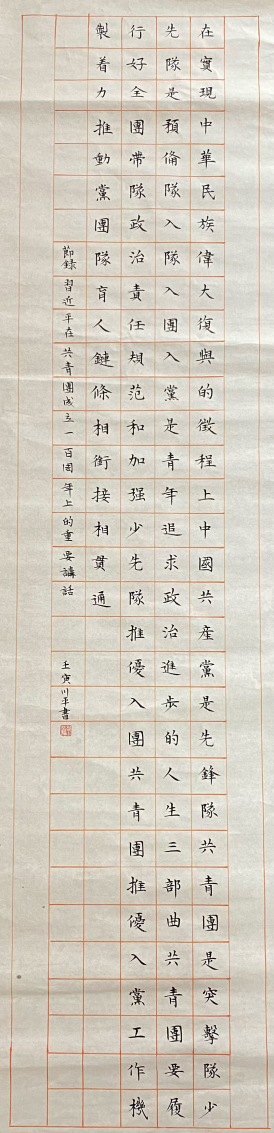 在實現中華民族偉大復興的徵程上中國共產黨是先鋒隊共青團是突擊隊少
先隊是預備隊入隊入團入黨是青年追求政治進步的人生三部曲共青團要履
行好全團帶隊政治責任規范和加强少先隊推優入團共青團推優入黨工作機
製着力推動黨團隊育人鏈條相銜接相貫通
節錄習近平在共青團成立一百周年上的重要講話
壬寅川平書